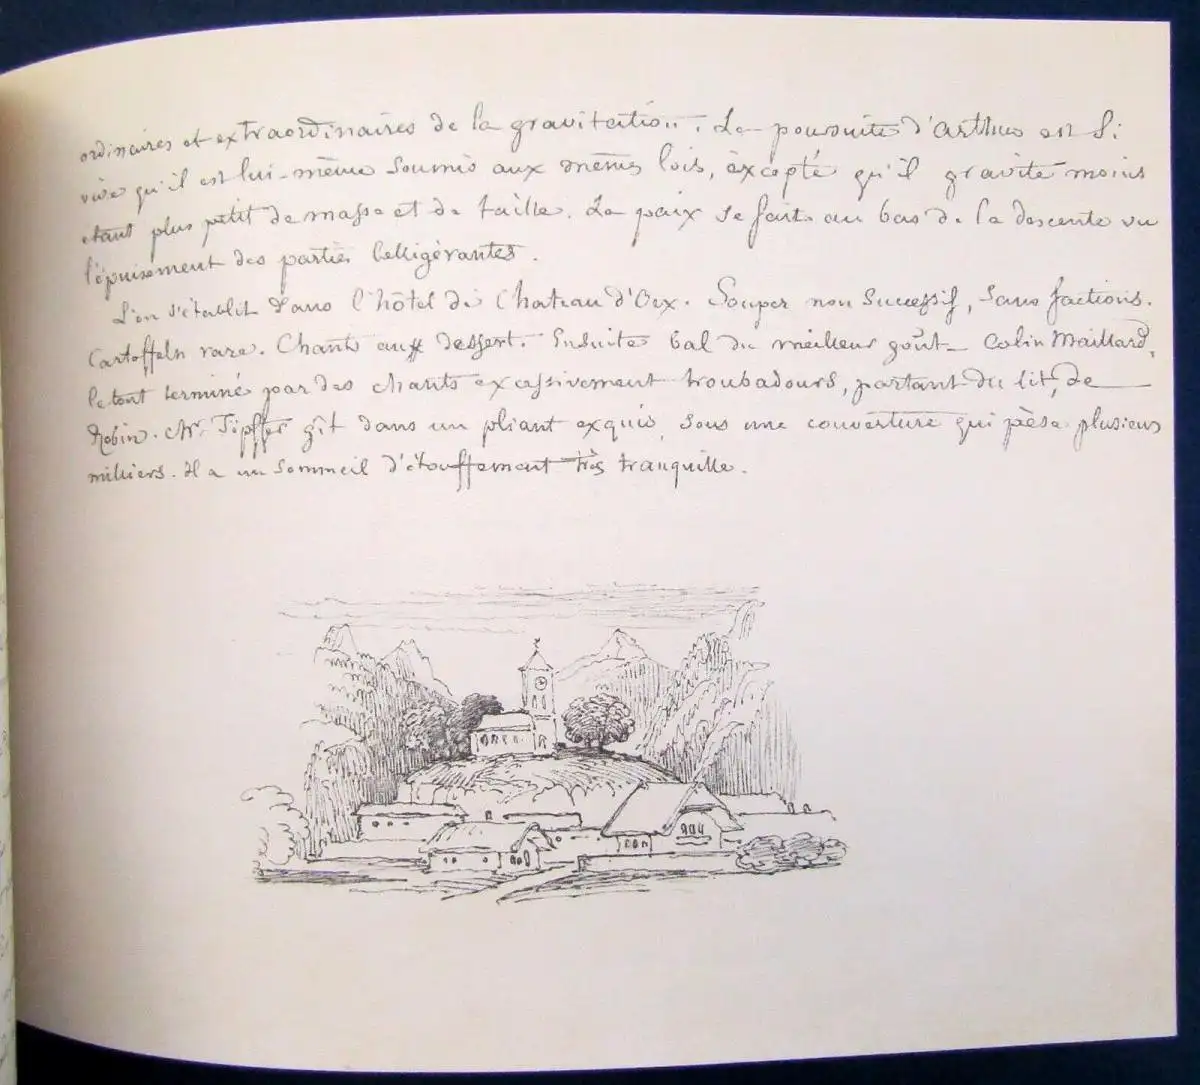 ordinaires et extraordinaires de la gravitation. La poursuite d'Arthur est si
vive qu'il est lui-même soumis aux mêmes lois, excepté qu'il gravite moins
étant plus petit de masse et de taille. La paix se fait au bas de la descente vu
l'épuisement des parties belligérantes.
L'on s'établit dans l'hôtel de Chateau d'Oex. Souper non successif, sans factions.
Cartoffeln rare. Chants au dessert. Ensuite bal du meilleur goût _ Colin Maillard,
le tout terminé par des chants excessivement troubadours, partant du lit, de
Robin. Mr. Töpffer gît dans un pliant exquis, sous une couverture qui pèse plusieurs
milliers. Il a un sommeil d'étouffement très tranquille.